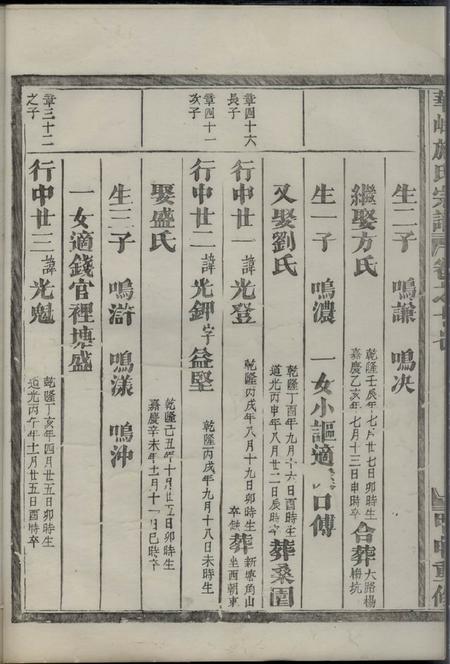 華峰施氏宗譜
生二子　鳴謙　鳴决
繼娶方氏　乾隆壬辰年七月廿七日卯時生
嘉慶乙亥年七月十三日申時卒　合葬大路楊梅坑
生一子　鳴濃　一女小謳適　口傅
又娶劉氏　乾隆丁酉年九月十六日酉時生
道光丙申年八月廿二日辰時卒　葬桑園
章四十六長子
行中廿一諱光登　乾隆丙戌年八月十九日卯時生
卒缺　葬新塘角山坐西朝東
章四十一次子
行中廿二諱光鉀字益堅　乾隆丙戌年九月十八日未時生
娶盛氏　乾隆己丑年十月廿五日卯時生
嘉慶辛未年十一月十一日巳時卒
生三子　鳴滸　鳴漾　鳴沖
一女適錢官裡塘盛
章三十二之子
行中廿三諱光魁　乾隆丁亥年四月廿五日卯時生
道光丙午年十一月廿五日酉時卒